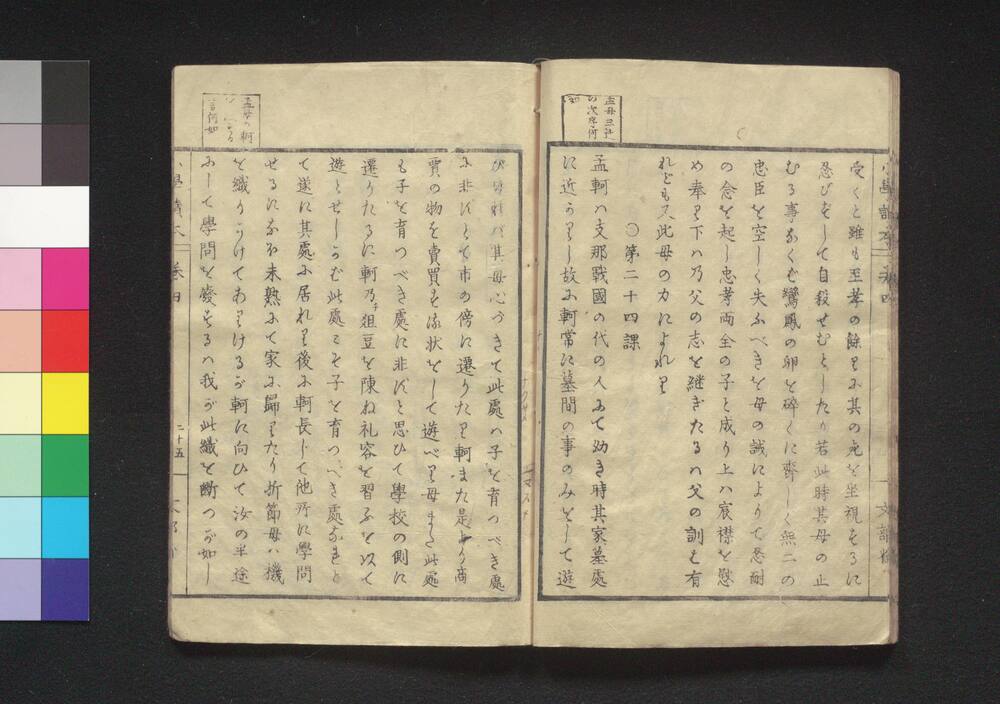 受くと雖も至孝の餘りに其の死を坐視するに
忍びずして自殺せむとしたり若此時其母の止
むる事なくば鸞鳳の卵を碎くに齊しく無二の
忠臣を空しく失ふべきを母の誡によりて忍耐
の念を起し忠孝両全の子と成り上ハ宸襟を慰
め奉り下ハ乃父の志を継ぎたるハ父の訓も有
れども又此母の力によれり
〇第二十四課
孟軻ハ支那戰國の代の人にて幼き時其家墓處
に近かりし故に軻常に墓間の事のみをして遊
孟母三遷
の次序何
如
びければ其母心づきて此處ハ子を育つべき處
に非ずとて市の傍に遷りたり軻また是より商
賈の物を賣買する状をして遊べり母また此處
も子を育つべき處に非ずと思ひて學校の側に
遷りたるに軻乃チ俎豆を陳ね礼容を習ふを以て
遊とせしかば此處こそ子を育つべき處なれと
て遂に其處に居れり後に軻長じて他所に學問
せるになほ未熟にて家に歸りたり折節母ハ機
を織りかけてありけるが軻に向ひて汝の半途
にして學問を廢するハ我が此織を断つが如し
孟母の軻
言何如
小學讀本
卷四
二十五